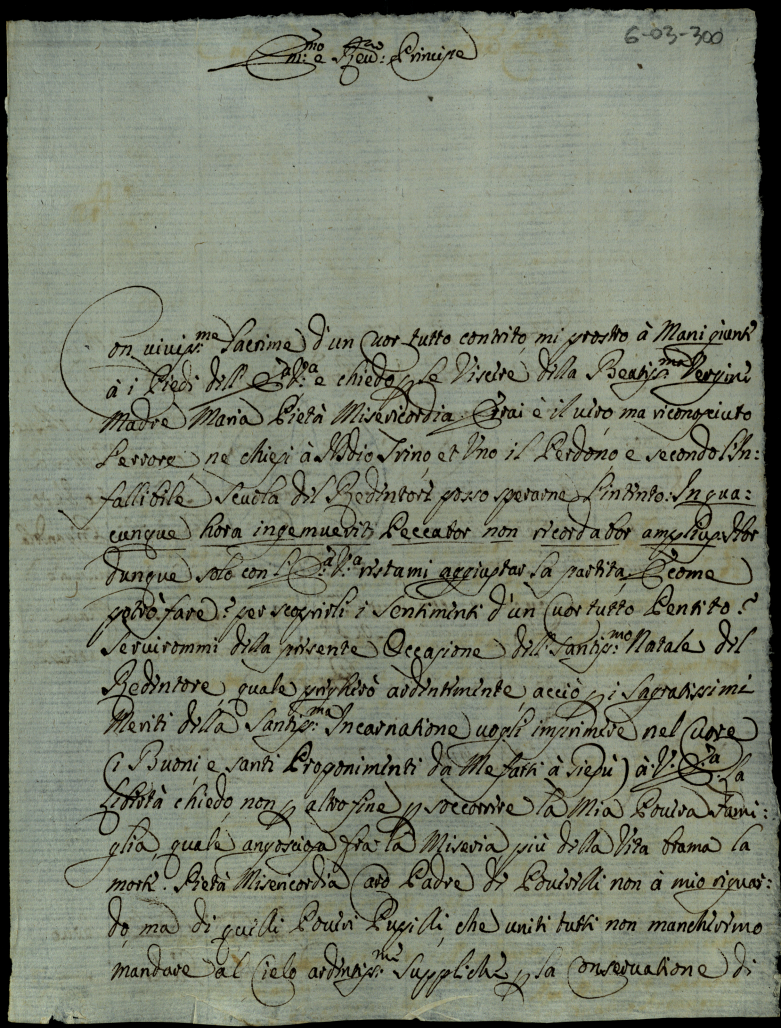 6-03-300
Em:mo e Reu:mo Principe
Con viuiss:me Lacrime d'un Cuor tutto contrito, mi prostro à Mani giunte
à i Piedi dell' E:a V:a e chiedo p le Viscere della Beatiss:ma Vergine
Madre Maria Pietà Misericordia. Errai è il uero ma riconosciuto
l'errore, ne chiesi à Iddio Trino et Uno il Perdono e secondo l'In:
fallibile Scuola del Redentore posso sperarne l'intento. In qua:
cunque hora ingemuerit Peccator non recordabor amplius. Hor
dunque solo con l' E:a V:a restami aggiustar la partita. E come
potrò fare? per scoprirli i sentimenti d'un Cuor tutto Pentito?
Seruirommi della presente Occasione dell' Santiss:mo Natale del
Redentore, quale pregherò ardentemente acciò p i Sagratissimi
Meriti della Santiss:ma Incarnatione uogli imprimere nel Cuore
(i Buoni e santi Proponimenti da Me fatti à Giesù) à V: E:za La
Libertà chiedo non p altro fine p soccorrere la Mia Pouera Fami:
glia, quale angosciosa frà la Miseria più della Vita brama la
morte. Pietà Misericordia Caro Padre de Pouerelli non à mio riguar:
do, ma di quelli Poueri Pupilli, che uniti tutti non mancheremo
mandare al Cielo ardentiss:me Suppliche p la Conseruatione di